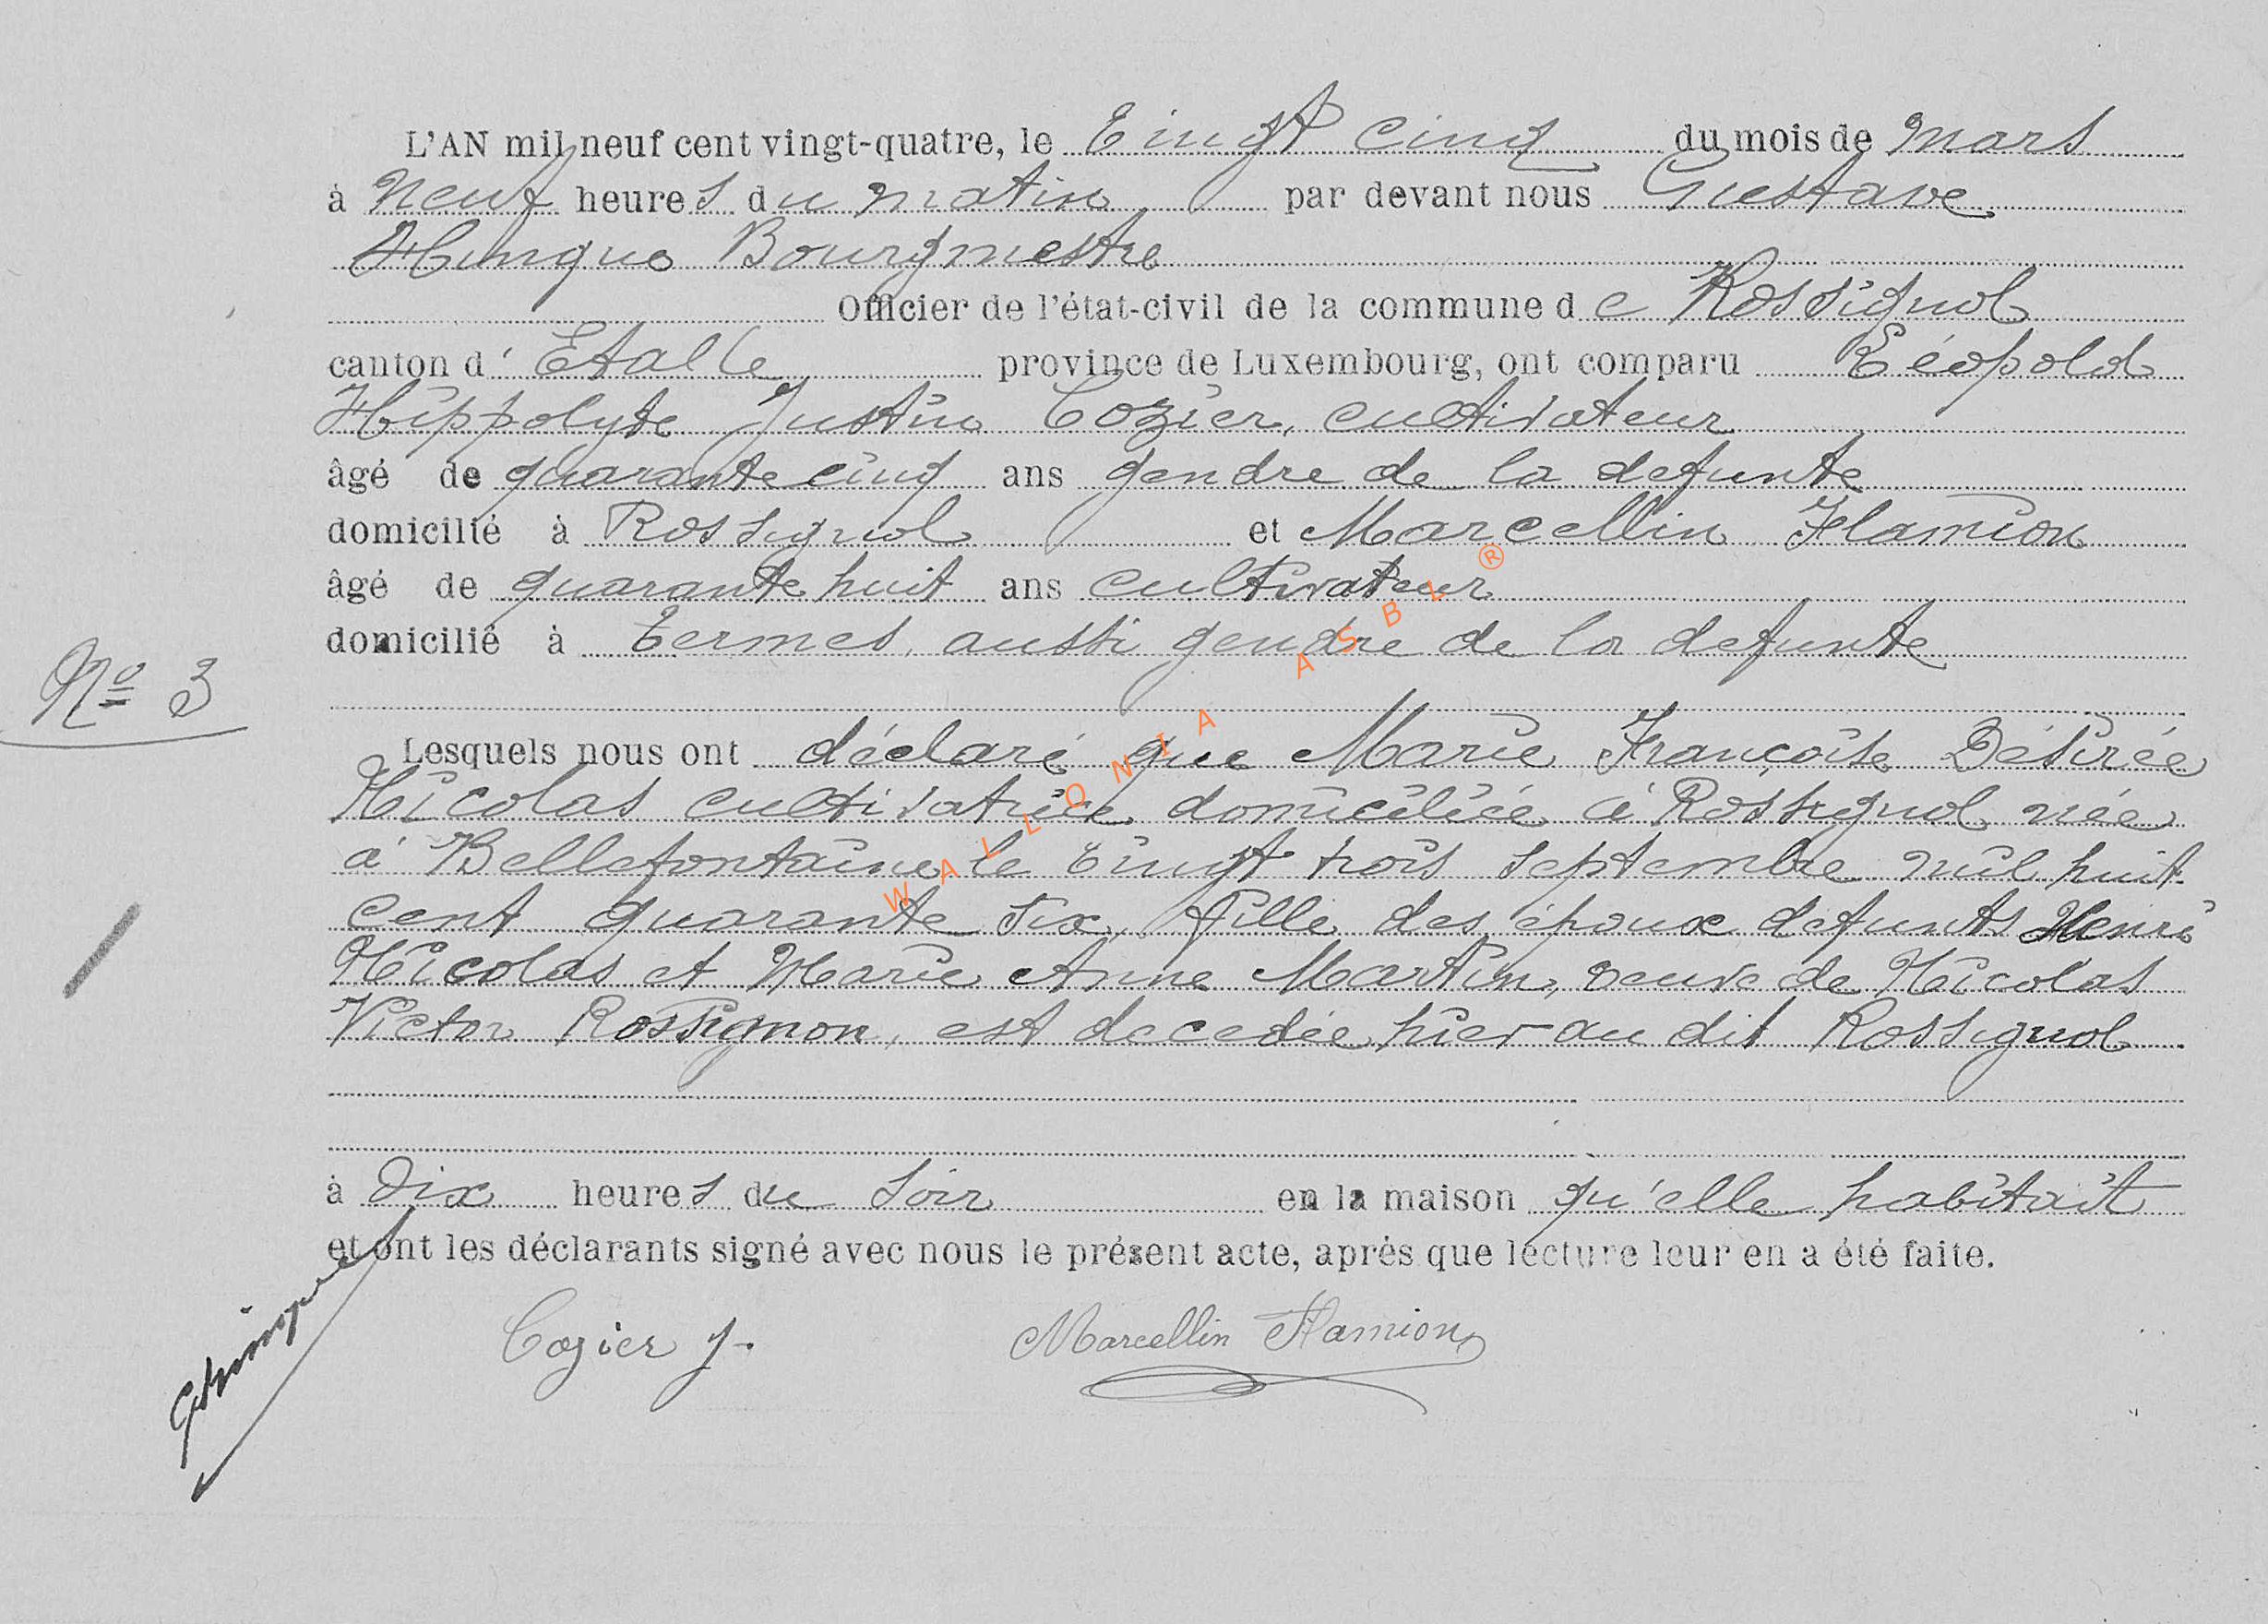 L'AN mil neuf cent vingt-quatre, le vingt cinq du mois de mars
à neuf heures du matin par devant nous Gustave
Hunque Bourgmestre
Officier de l'état-civil de la commune de Rossignol
canton d'Etalle province de Luxembourg, ont comparu Léopold
Hippolyte Justin Cozier, cultivateur
âgé de quarante cinq ans gendre de la defunte
domicilié à Rossignol et Marcellin Flamion
âgé de quarante huit ans cultivateur
domicilié à termes, aussi gendre de la defunte
No 3
Lesquels nous ont déclaré que Marie Françoise Désirée
Nicolas cultivatrice domiciliée à Rossignol née
à Bellefontaine le vingt trois septembre mil huit
cent quarante six, fille des époux defunts Henri
Nicolas et Marie Anne Martin, veuve de Nicolas
Victor Rossignon, est decedée hier au dit Rossignol
à dix heures du soir en la maison qu'elle habitait
et ont les déclarants signé avec nous le présent acte, après que lecture leur en a été faite.
Cozier J. Marcellin Flamion
WALLONIA ASBL ®